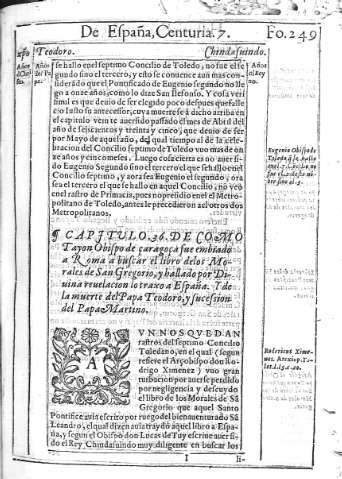 De España, Centuria. 7. Fo. 249
Teodoro. Chindasuindo.
se hallo en el septimo Concilio de Toledo, no fue el se
gundo sino el tercero, y esto se conuence aun mas con
siderãdo que el Pontificado de Eugenio segundo no lle
go a onze años, como lo dize San Ilefonso. Y cosa veri
simil es que denio de ser elegido poco despues que falle
cio Iusto su antecessor, cuya muerte se a dicho arriba en
el capitulo veinte auer sido passado el mes de Abril del
año de seiscientos y treinta y cinco, que denio de ser
por Mayo de aquel año, del qual tiempo al de la cele-
bracion del Concilio septimo de Toledo vuo mas de on
ze años y cinco meses. Luego cosa cierta es no auer si-
do Eugenio Segundo sino el tercero el que se hallo en el
Concilio septimo, y aora sea Eugenio el segundo, ora
sea el tercero el que se hallo en aquel Concilio, no veo
en el rastro de Primacia, pues no presidio en el el Metro-
politano de Toledo, antes le precedieron a el otros dos
Metropolitanos.
Eugenio Obispo de
¶ CAPITULO. 36. DE COMO
Tayon Obispo de çaragoça fue embiado
a Roma a buscar el libro de los Mo-
rales de San Gregorio, y hallado por Di-
uina reuelacion lo traxo a España. Y de
la muerte del Papa Teodoro, y sucesion
del Papa Martino.
AVNNOS QVEDAN
rastros del septimo Concilio
Toledano, en el qual (segun
refiere el Arçobispo don Ro-
drigo Ximenez) vuo gran
turbacion por auerse perdido
por negligencia y descuydo
el libro de los Morales de Sã
Gregorio que aquel Santo
Pontifice auia escrito por ruego del bienauenturado Sã
Leandro, el qual dizen auia traydo aquel libro a Espa-
ña, y segun el Obispo don Lucas de Tuy escriue auer si-
do el Rey Chindasuindo muy diligente en buscar los
Rodericus Xime-
I li-